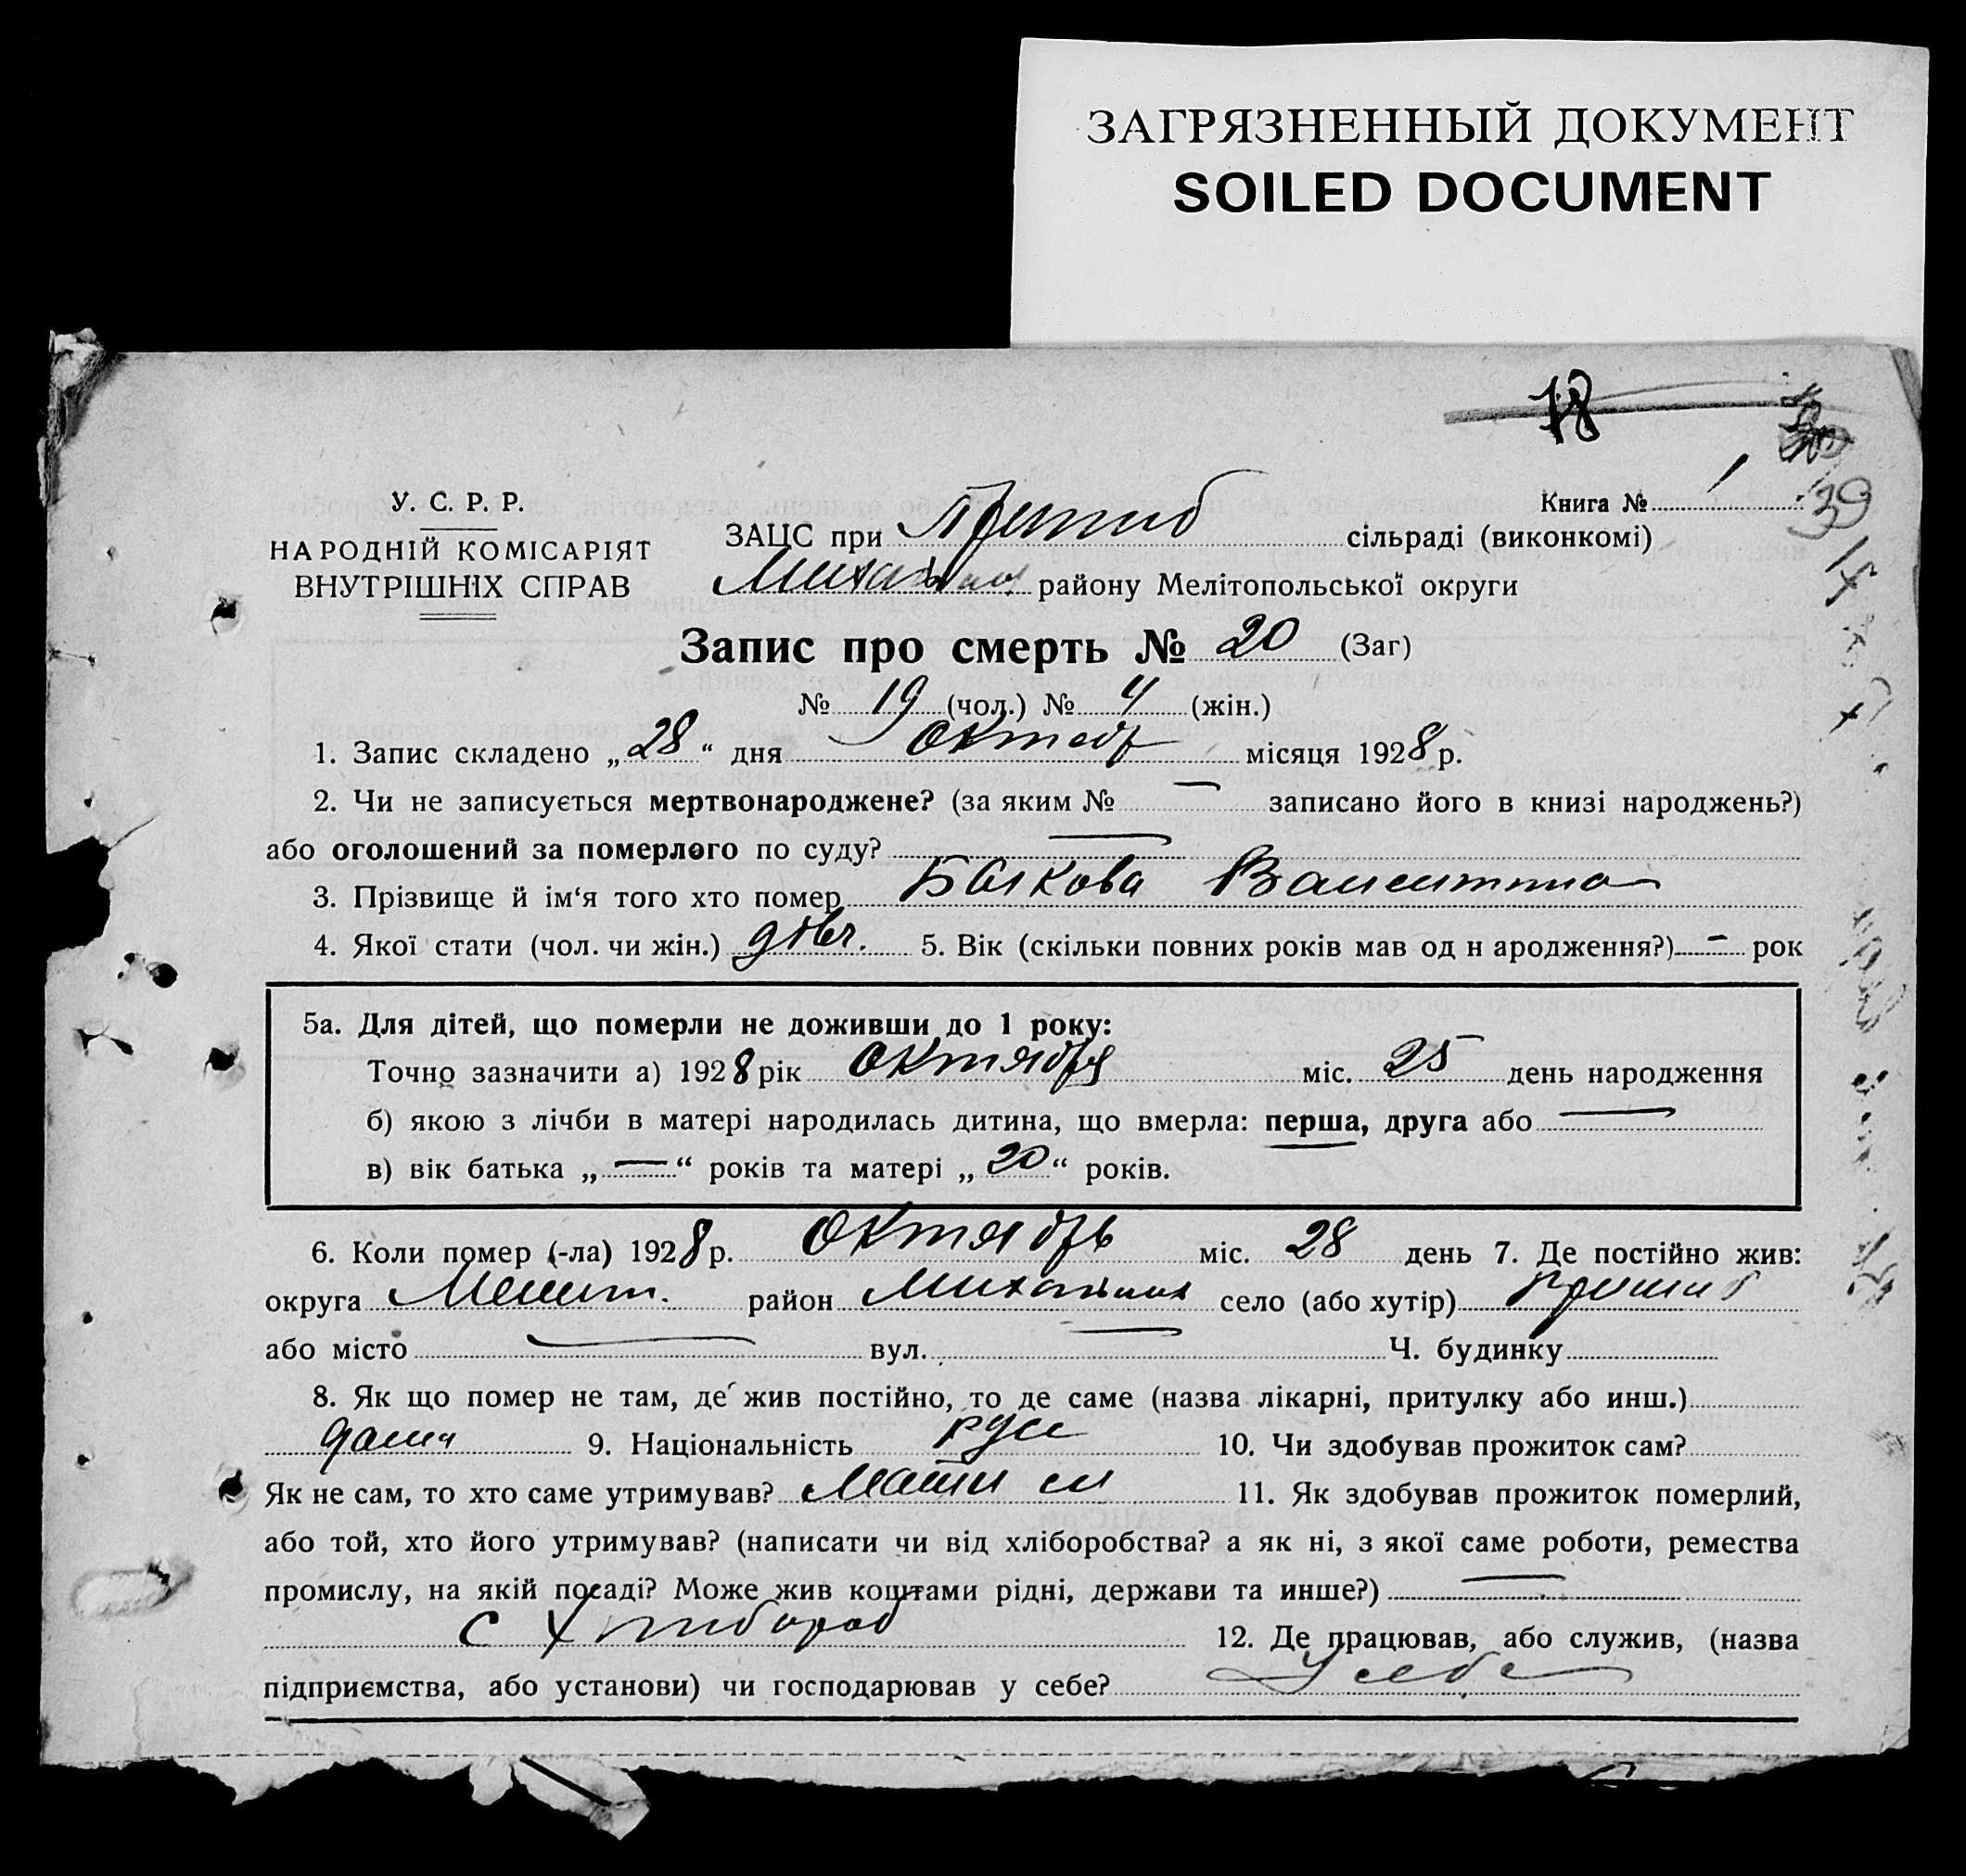 ЗАГРЯЗНЕННЫЙ ДОКУМЕНТ
SOILED DOCUMENT
18
39
У. С. Р. Р.
НАРОДНІЙ КОМІСАРІЯТ
ВНУТРІШНІХ СПРАВ
Книга № 1
ЗАЦС при Пришиб сільраді (виконкомі)
району Мелітопольської округи
Запис про смерть № 20 (Заг)
№ 19 (чол.) № 4 (жін.)
1. Запис складено „28“ дня Октябр місяця 1928 р.
2. Чи не записується мертвонароджене? (за яким № — записано його в книзі народжень?)
або оголошений за померлого по суду? —
3. Прізвище й ім‘я того хто помер Валентина
4. Якої стати (чол. чи жін.) дівч. 5. Вік (скільки повних років мав од н ародження?) - рок
5а. Для дітей, що померли не доживши до 1 року:
Точно зазначити а) 1928 рік Октября міс. 25 день народження
б) якою з лічби в матері народилась дитина, що вмерла: перша, друга або —
в) вік батька „—“ років та матері „20“ років.
6. Коли помер (-ла) 1928 р. Октябрь міс. 28 день 7. Де постійно жив:
округа Мелит. район село (або хутір) Пришиб
або місто — вул. — Ч. будинку
8. Як що помер не там, де жив постійно, то де саме (назва лікарні, притулку або инш.)
дома 9. Національність русс 10. Чи здобував прожиток сам?
Як не сам, то хто саме утримував? Мати 11. Як здобував прожиток померлий,
або той, хто його утримував? (написати чи від хліборобства? а як ні, з якої саме роботи, ремества
промислу, на якій посаді? Може жив коштами рідні, держави та инше?) —
с хлибороб 12. Де працював, або служив, (назва
підприємства, або установи) чи господарював у себе? У себе